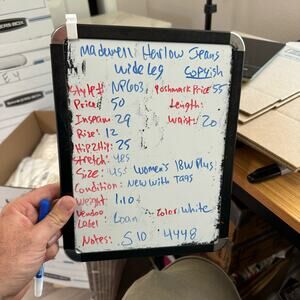 Madewell Harlow Jeans
Wide Leg
Style#: NP603 Poshmark Price 55
Price: 50 Length:
Inseam: 29 Waist: 20
Rise: 12
Hip2Hip: 25
Stretch: yes
Size: Women's 18W Plus
Condition: New with Tags
Weight: 1.10
Vendoo
Label: Loan Color: White
Notes: S10 4448